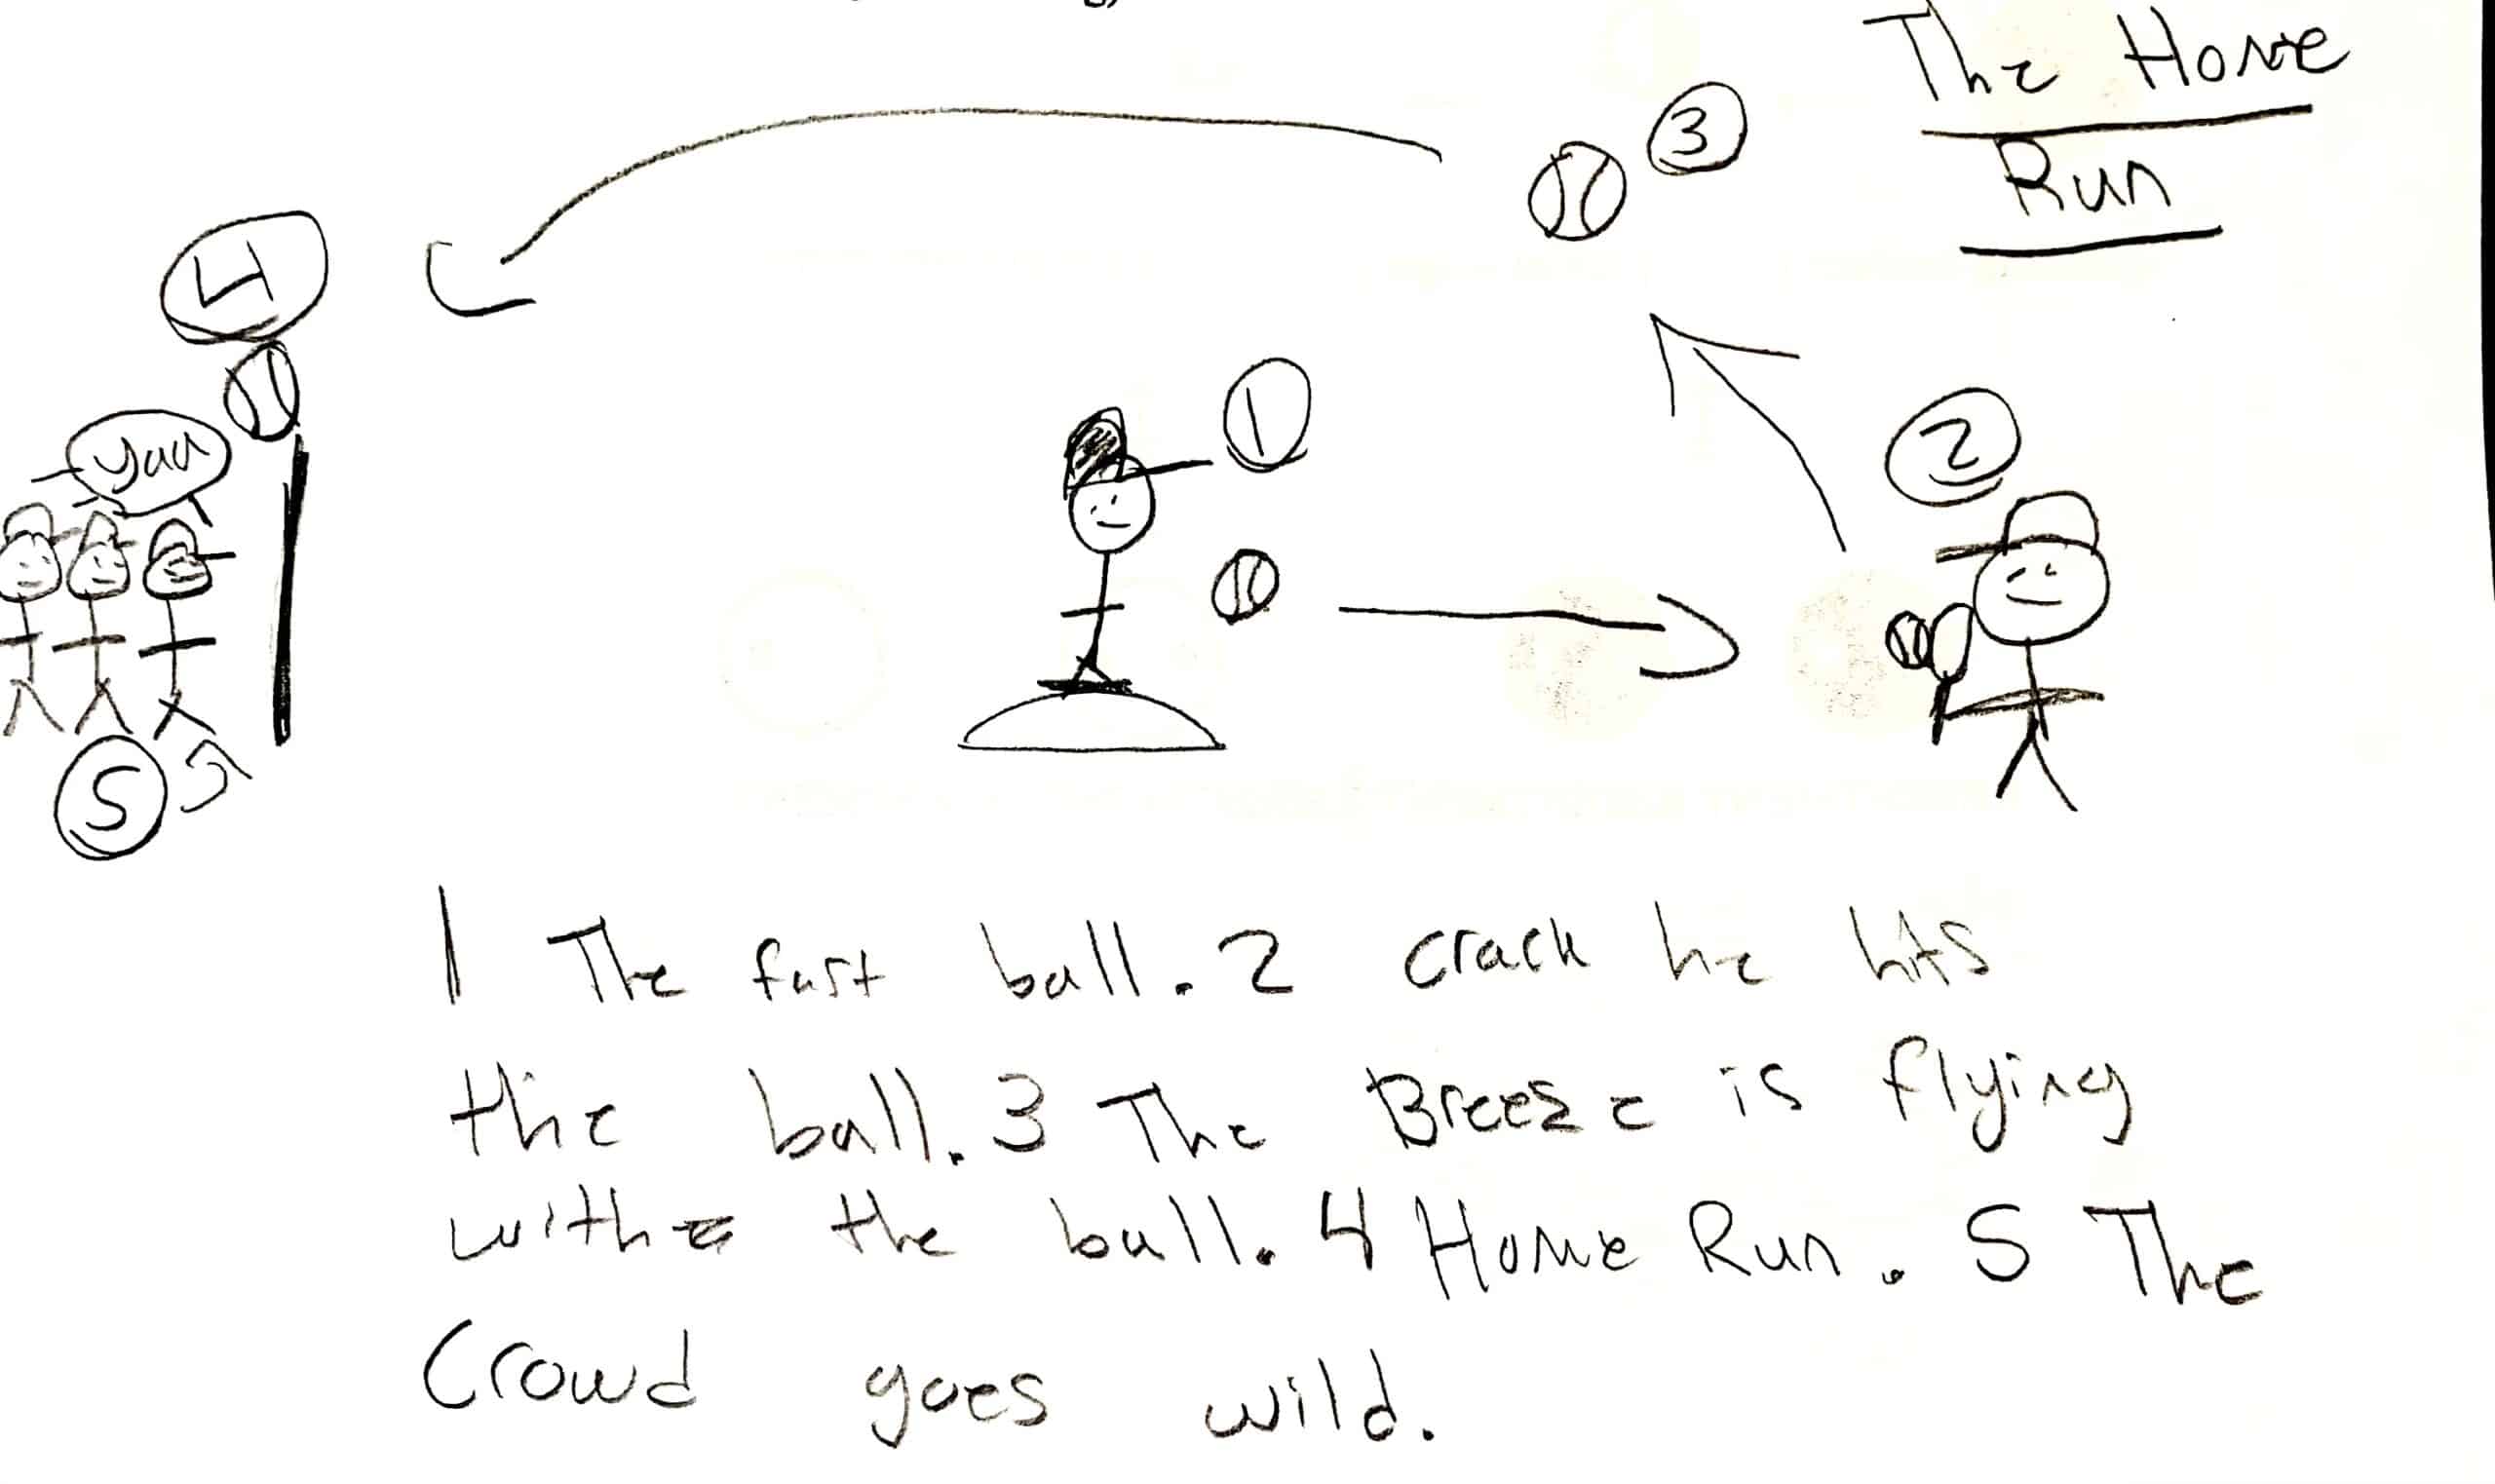 The Home
Run
3
4
1
2
yau
5
1 The fast ball. 2 crack he hits
the ball. 3 The Breeze is flying
with the ball. 4 Home Run. 5 The
Crowd goes wild.